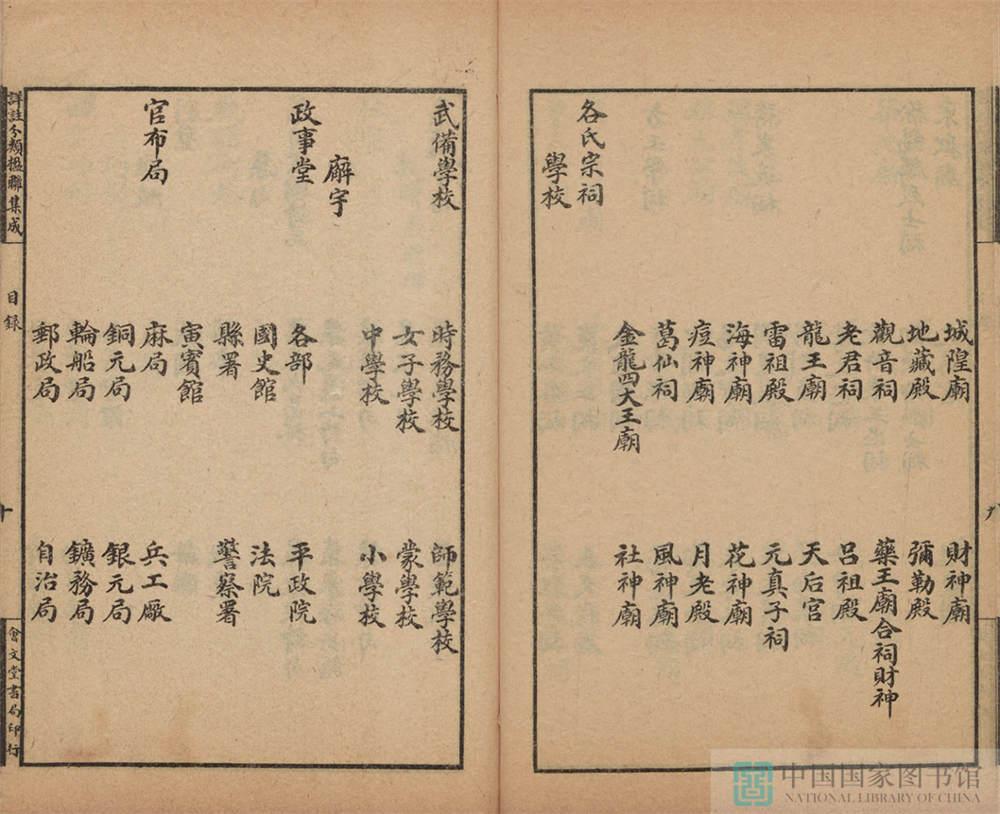 城隍廟 財神廟
地藏殿 彌勒殿
觀音祠 藥王廟合祠財神
老君祠 呂祖殿
龍王廟 天后宮
雷祖殿 元真子祠
海神廟 花神廟
痘神廟 月老殿
葛仙祠 風神廟
金龍四大王廟 社神廟
各氏宗祠
學校
武備學校 時務學校 師範學校
女子學校 蒙學校
中學校 小學校
廨宇
政事堂 各部 平政院
國史館 法院
縣署 警察署
寅賓館
官布局 麻局 兵工廠
銅元局 銀元局
輪船局 鑛務局
郵政局 自治局
詳註分類楹聯集成 目錄 十 會文堂書局印行
中国国家图书馆
NATIONAL LIBRARY OF CHINA